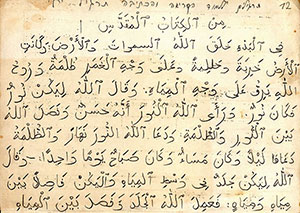 תרגילים ללמוד הקריאה והכתיבה 12
من الكتاب المقدس
في البدء خلق الله السموات والأرض وكانت
الأرض خربة وخالية وعلى وجه الغمر ظلمة وروح
الله يرف على وجه المياه. وقال الله ليكن نور
فكان نور ورأى الله النور أنه حسن وفصل الله
بين النور والظلمة ودعا الله النور نهار والظلمة
دعاها ليلا وكان مساء وكان صباح يوما واحدا. وقال
الله ليكن جلد في وسط المياه وليكن فاصلا بين
مياه ومياه. فعمل الله الجلد وفصل بين المياه